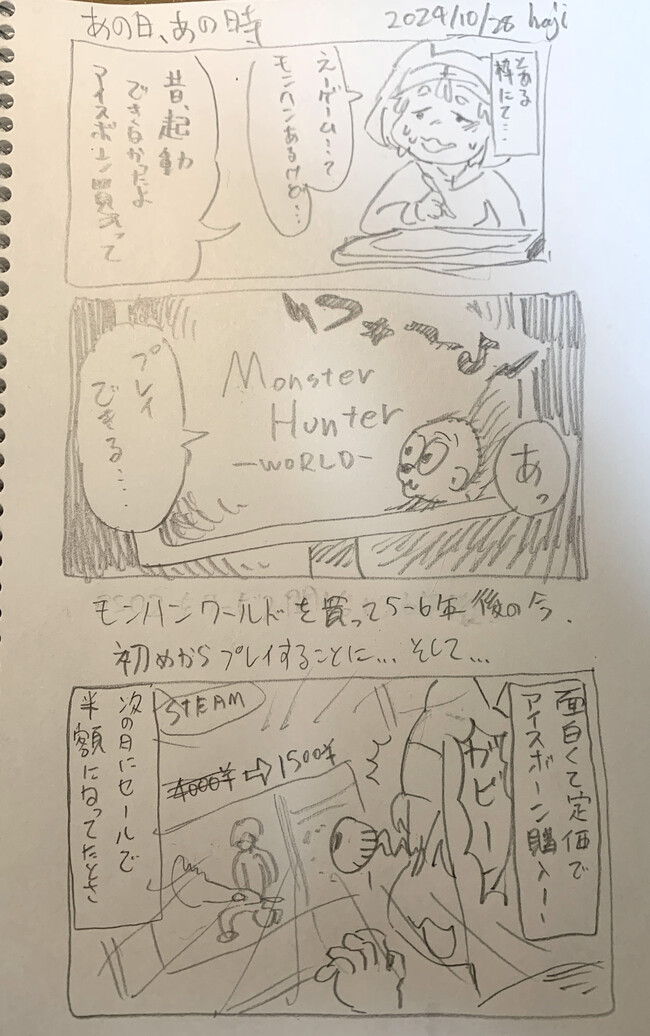 あの日、あの時
2024/10/28 haji
とある
枠にて…
えーゲーム…?
モンハンあるけど…
昔、起動
できなかったよ
アイスボーン買って
Monster
Hunter
-WORLD-
あっ
プレイ
できる…
モンハンワールドを買って5-6年後の今、
初めからプレイすることに…そして…
面白くて定価で
アイスボーン購入ー
ガビーン
STEAM
4000¥⇨1500¥
次の日にセールで
半額になってたとき